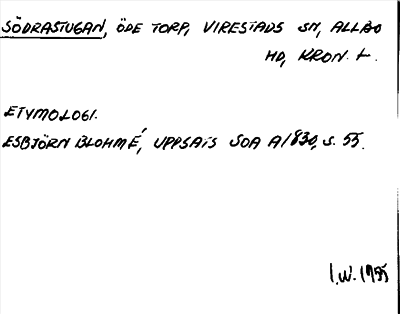 SÖDRASTUGAN, ÖDE TORP, VIRESTADS SN, ALLBO
HD, KRON. L.
ETYMOLOGI.
ESBJÖRN BLOHMÉ, UPPSATS SOA A1830, S. 55.
I.W. 1955